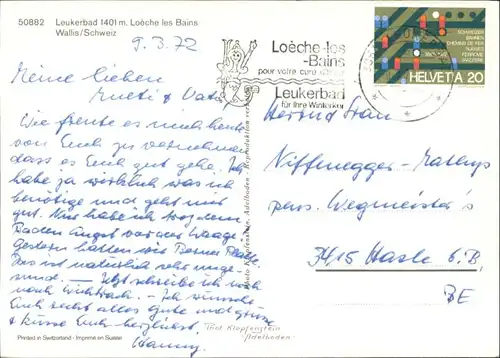 50882 Leukerbad 1401 m. Loèche les Bains
Wallis/Schweiz
9.3.72
Meine lieben
Mueti & Vati
Wie freute es mich heute
von Euch zu vernehmen
dass es Euch gut gehe. Ich
habe ja wirklich was ich
benötige und geht mir
gut. Nur habe ich trotz dem
Baden Angst vor der Waage.
Gestern hatten wir Berner Platte.
Das ist natürlich sehr unge-
sund. — Jetzt schreibe ich noch
nach Wichtrach. – Ich wünsche
Euch recht alles Gute und grüsse
& küsse Euch herzlichst.
Hanny
Printed in Switzerland - Imprimé en Suisse
Photo Klopfenstein, Adelboden - Reproduktion
Phot Klopfenstein
Adelboden
Loèche-les
-Bains
pour votre cure
Leukerbad
für Ihre Winterkur
SCHWEIZER
BAHNEN
CHEMINS DE FER
SUISSES
FERROVIE
SVIZZERE
HELVETIA 20
Herrn & Frau
Niffenegger-
pens. Wegmeister's
3415 Hasle b.B.
BE